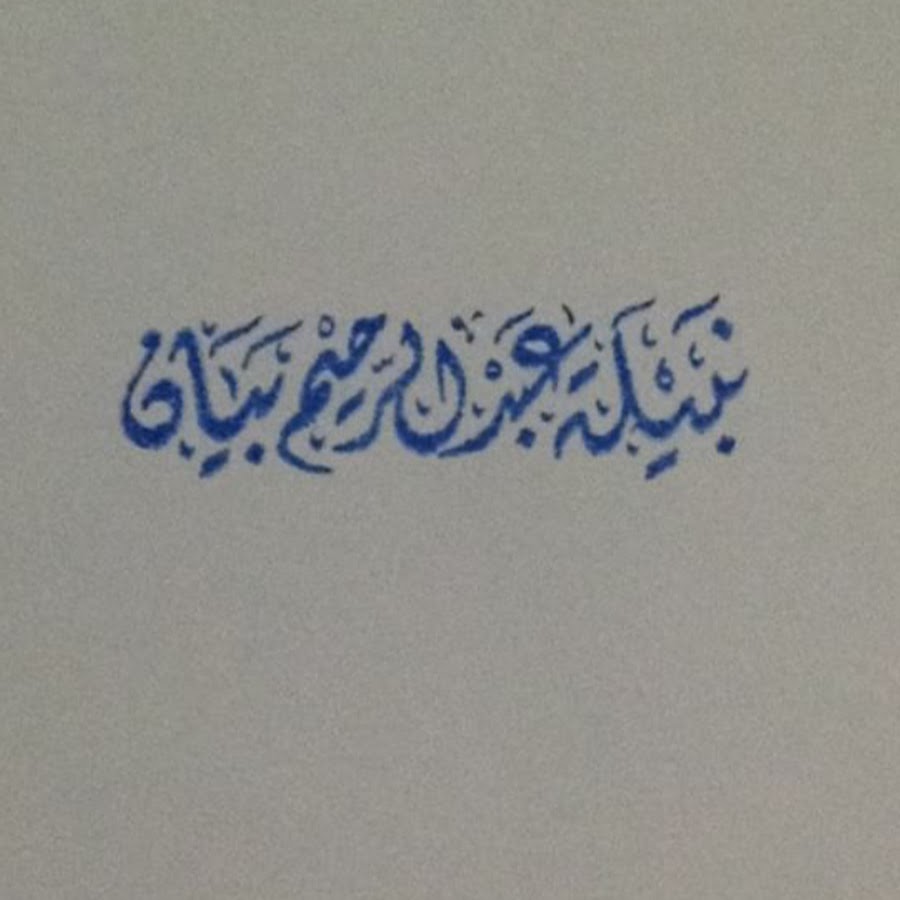 نبيلة عبدالرحيم بيان